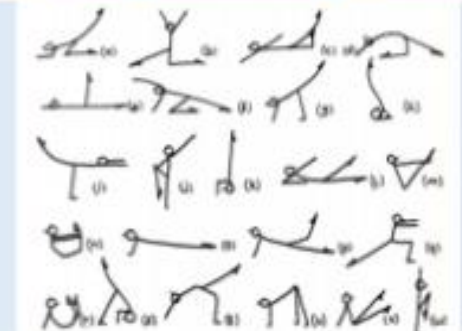 (a) (b) (c) (d)
(e) (f) (g) (h)
(i) (j) (k) (l) (m)
(n) (o) (p) (q)
(r) (s) (t) (u) (v) (w)